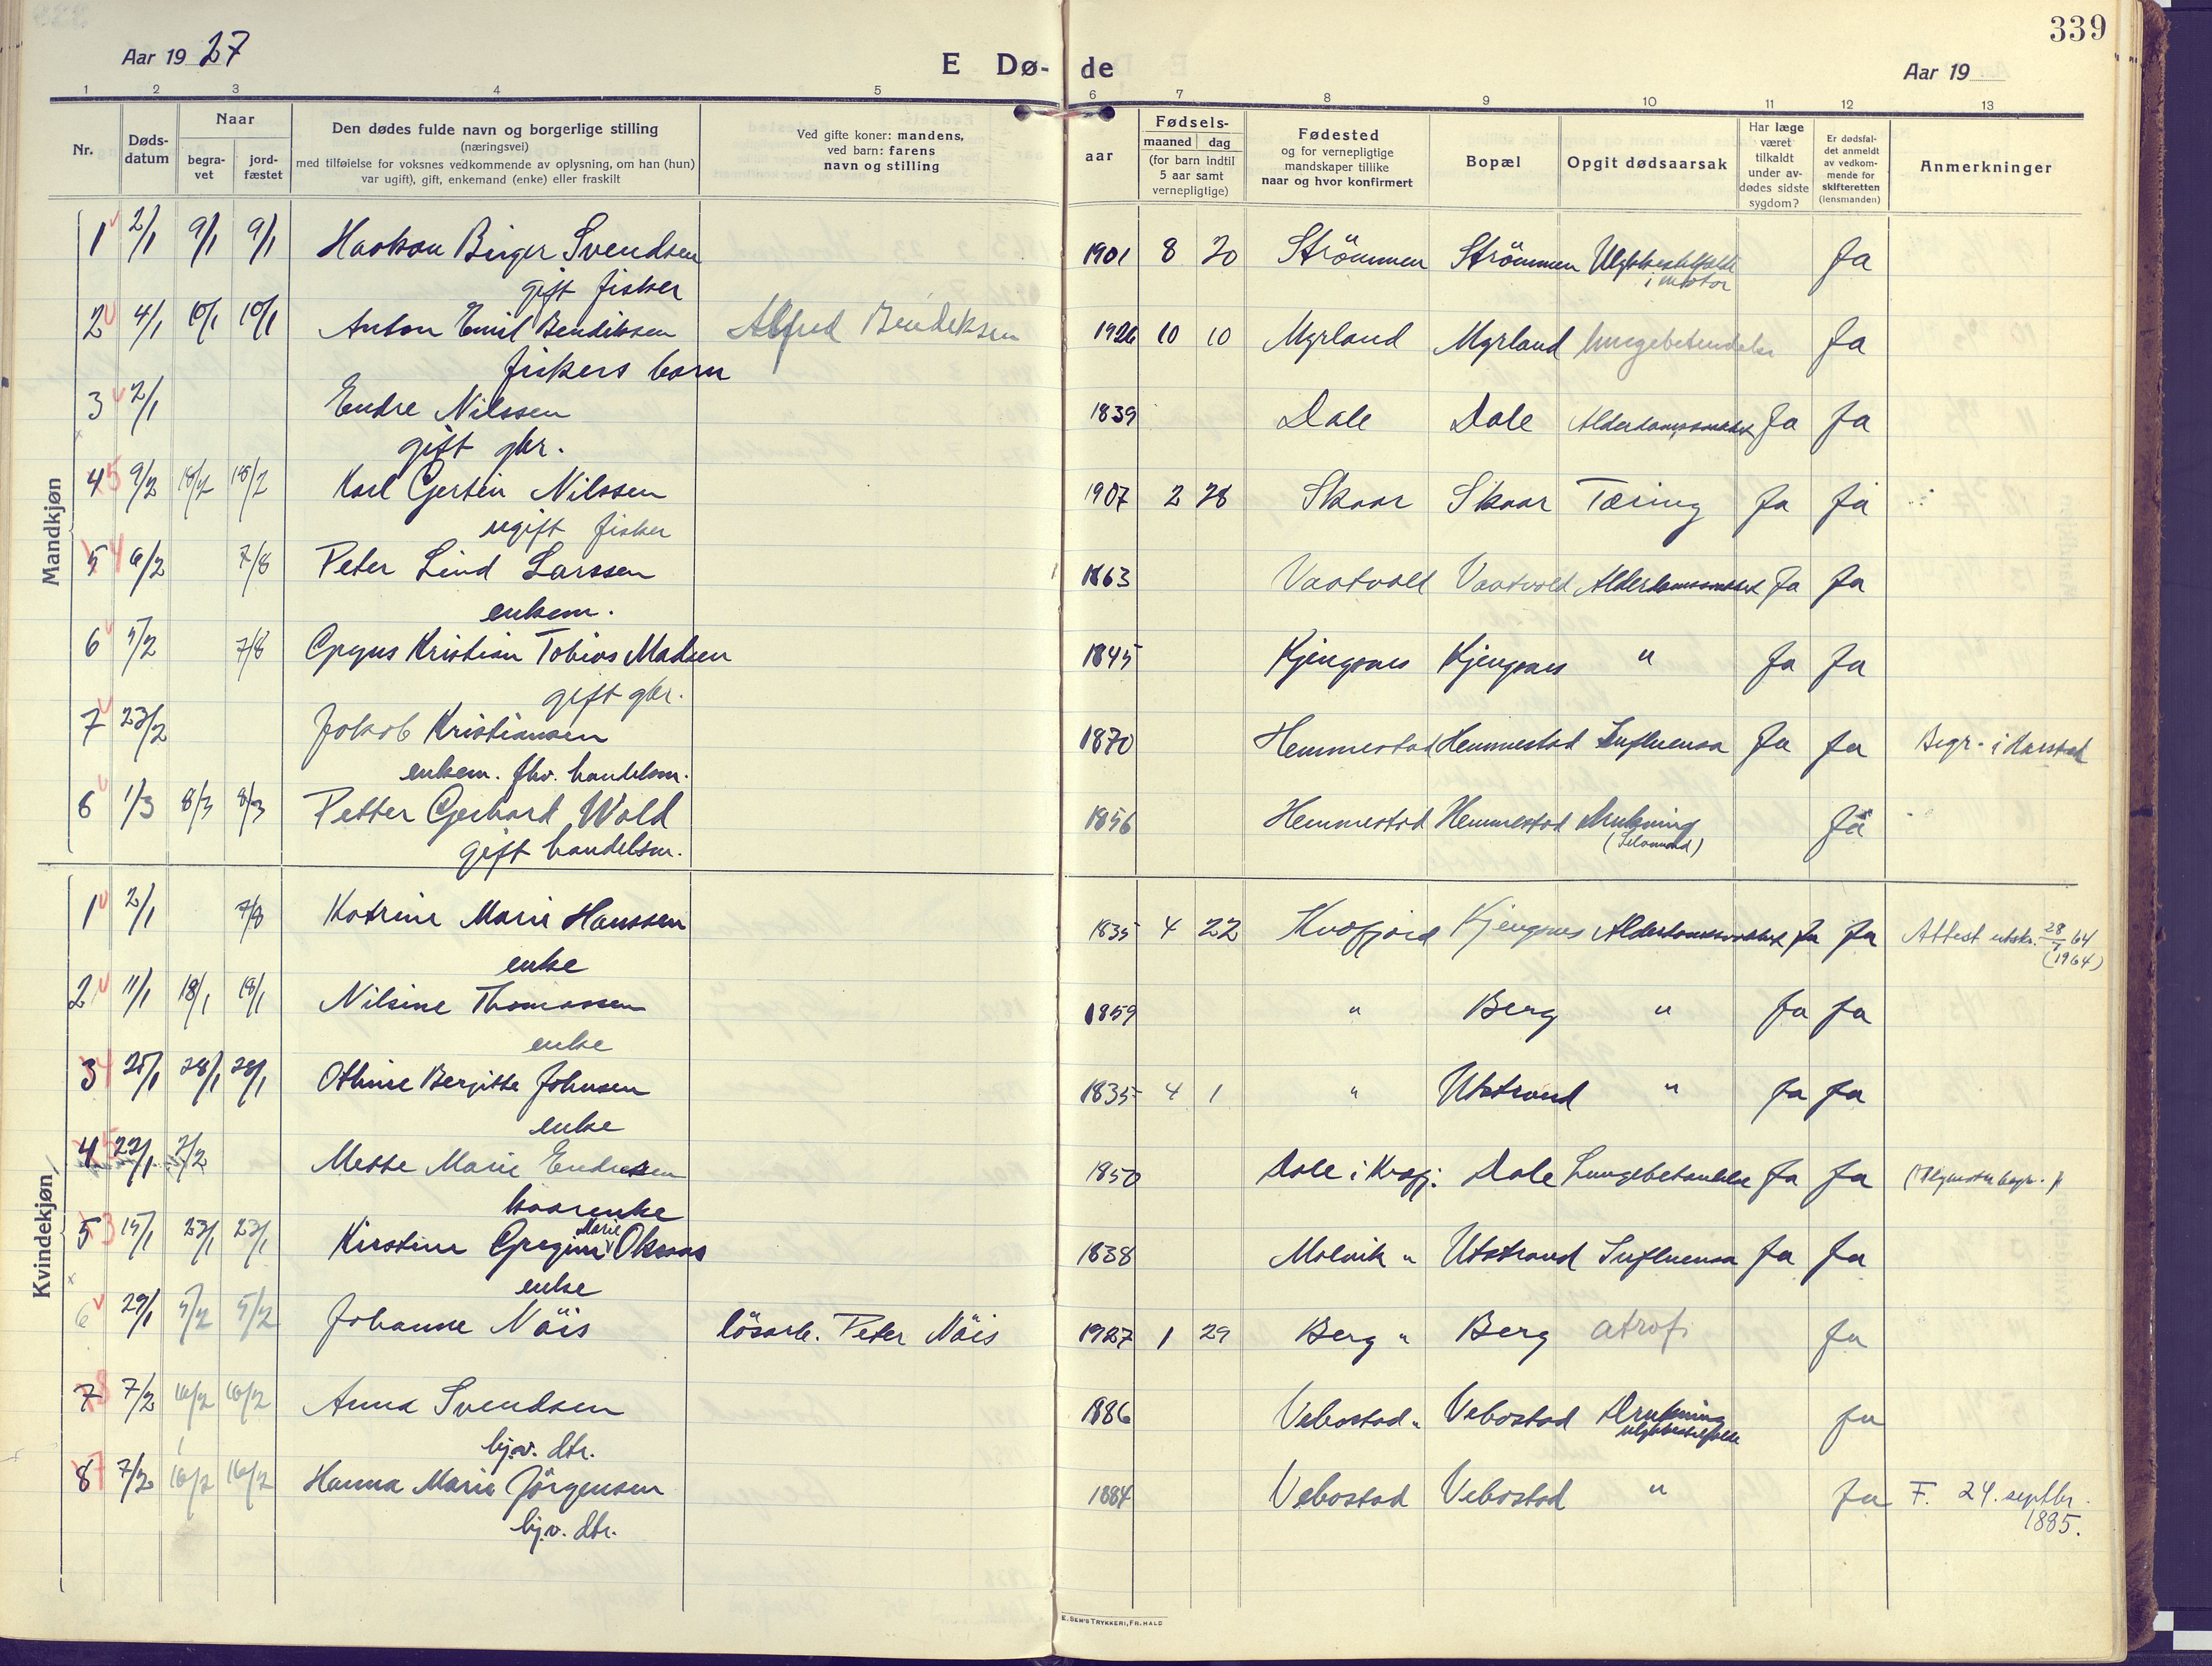 339
Aar 19 27
E Dø- de
Aar 19
1 2 3 4 5 6 7 8 9 10 11 12 13
Nr.
Døds-
datum
Naar
begra-
vet
jord-
fæstet
Den dødes fulde navn og borgerlige stilling
(næringsvei)
med tilføielse for voksnes vedkommende av oplysning, om han (hun)
var ugift), gift, enkemand (enke) eller fraskilt
Ved gifte koner: mandens,
ved barn: farens
navn og stilling
aar
Fødsels-
maaned dag
(for barn indtil
5 aar samt
vernepligtige)
Fødested
og for vernepligtige
mandskaper tillike
naar og hvor konfirmert
Bopæl
Opgit dødsaarsak
Har læge
været
tilkaldt
under av-
dødes sidste
sygdom?
Er dødsfal-
det anmeldt
av vedkom-
mende for
skifteretten
(lensmanden)
Anmerkninger
Mandkjøn
1 2/1 9/1 9/1 Haakon Birger Svendsen 1901 8 20 Strömmen Strömmen Ulykkestilfælde Ja
gift fisker i motor
2 4/1 10/1 10/1 Anton Emil Bendiksen Alfred Bendiksen 1926 10 10 Myrland Myrland lungebetendelse Ja
fiskers barn
3 2/1 Endre Nilssen 1839 Dale Dale Alderdomssvakhet Ja Ja
gift gbr.
4 5 9/2 18/2 18/2 Karl Gertein Nilssen 1907 2 28 Skaar Skaar Tæring Ja Ja
ugift fisker
5 4 6/2 7/8 Peter Lind Larssen 1863 Vaatvold Vaatvold Alderdomssvakhet Ja Ja
enkem.
6 5/2 7/8 Kristian Tobias Madsen 1845 Kjengsnes Kjengsnes " Ja Ja
gift gbr.
7 23/2 Jakob Kristiansen 1870 Hemmestad Hemmestad Influensa Ja Ja Begr. i Harstad
enkem. fhv. handelsm.
8 1/3 8/3 8/3 Petter Gerhard Wold 1856 Hemmestad Hemmestad Drukning Ja
gift handelsm. (Selvmord)
Kvindekjøn
1 2/1 7/8 Katrine Marie Hanssen 1835 4 22 Kvæfjord Kjengsnes Alderdomssvakhet Ja Ja Attest utskr. 28/7 64
enke (1964)
2 11/1 18/1 18/1 Nilsine Thomassen 1859 " Berg " Ja Ja
enke
3 4 25/1 28/1 28/1 Othine Bergitte Johnsen 1835 4 1 " Utstrand " Ja Ja
enke
4 5 27/1 7/2 Mette Marie Endresen 1850 Dale i Kvæfj. Dale Lungebetændelse Ja Ja
kaarenke
5 3 15/1 23/1 23/1 Kirstine Gregine Marie Oksaas 1838 Molvik " Utstrand Influensa Ja Ja
enke
6 29/1 5/2 5/2 Johanne Nöis lösarb. Peter Nöis 1927 1 29 Berg " Berg atrofi Ja
7 8 7/2 16/2 16/2 Anna Svendsen 1886 Vebostad " Vebostad Drukning Ja
hj.v. dtr. ulykkestilfælde
8 7 7/2 16/2 16/2 Hanna Marie Jörgensen 1884 Vebostad Vebostad " Ja F. 24. septbr.
hj.v. dtr. 1885.
E. SEM'S TRYKKERI, FR. HALD